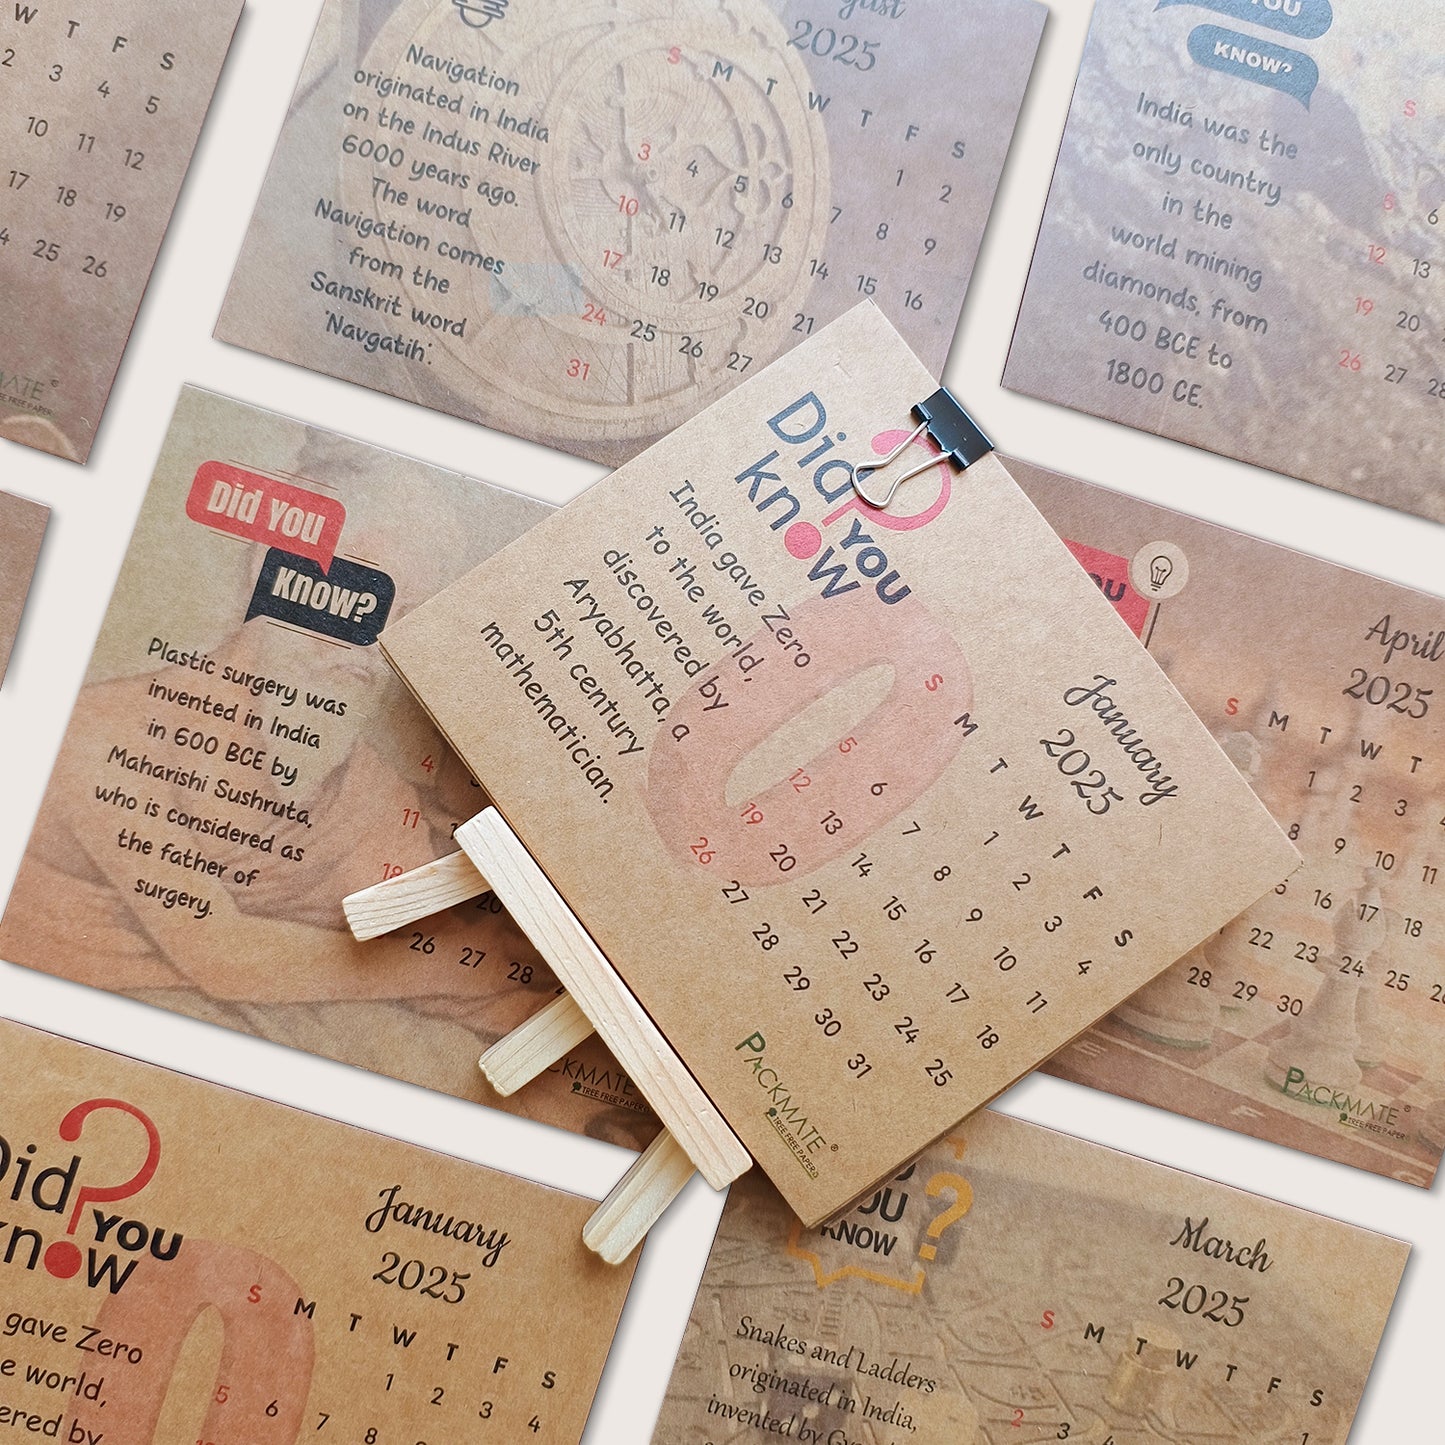 W T F S
2 3 4 5
10 11 12
17 18 19
25 26
TREE FREE PAPER
2025
S M T W T F S
1 2
3 4 5 6 7 8 9
10 11 12 13 14 15 16
17 18 19 20 21
24 25 26 27
31
Navigation
originated in India
on the Indus River
6000 years ago.
The word
Navigation comes
from the
Sanskrit word
'Navgatih'.
YOU
KNOW?
India was the
only country
in the
world mining
diamonds, from
400 BCE to
1800 CE.
S
5 6
12 13
19 20
26 27 28
Did YOU
KNOW?
Plastic surgery was
invented in India
in 600 BCE by
Maharishi Sushruta,
who is considered as
the father of
surgery.
4
11
18 20
26 27 28
PACKMATE
TREE FREE PAPER
Did
YOU
knOW
India gave Zero
to the world,
discovered by
Aryabhatta, a
5th century
mathematician.
January
2025
S M T W T F S
1 2 3 4
5 6 7 8 9 10 11
12 13 14 15 16 17 18
19 20 21 22 23 24 25
26 27 28 29 30 31
PACKMATE®
TREE FREE PAPER
April
2025
S M T W T
1 2 3
8 9 10 11
15 16 17 18
22 23 24 25
28 29 30
PACKMATE®
TREE FREE PAPER
Did
YOU
knOW
gave Zero
e world,
ered by
January
2025
S M T W T F S
1 2 3 4
5 6 7 8
YOU
KNOW
?
Snakes and Ladders
originated in India,
invented by
March
2025
S M T W T F S
1
2 3 4